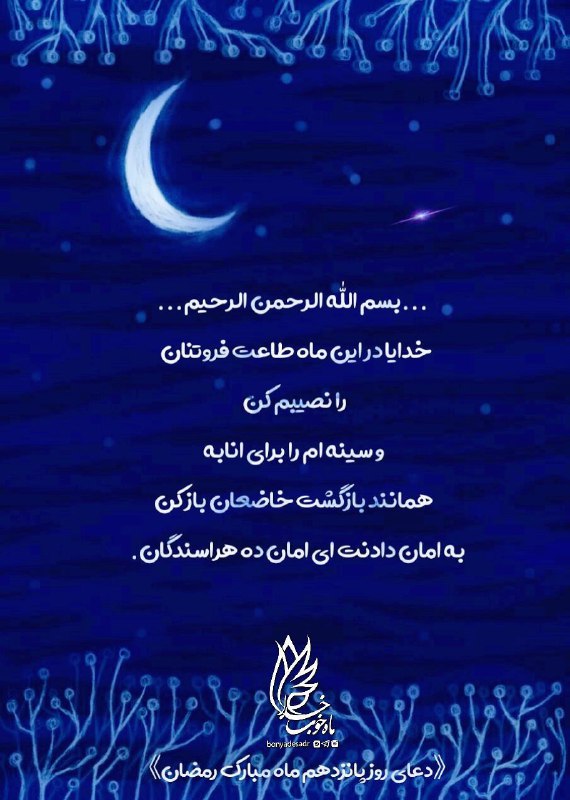 ...بسم الله الرحمن الرحیم...
خدایا در این ماه طاعت فروتنان
را نصیبم کن
و سینه ام را برای انابه
همانند بازگشت خاضعان باز کن
به امان دادنت ای امان ده هراسندگان.
ماه خوب خدا
bonyadesadr
《دعای روز پانزدهم ماه مبارک رمضان》